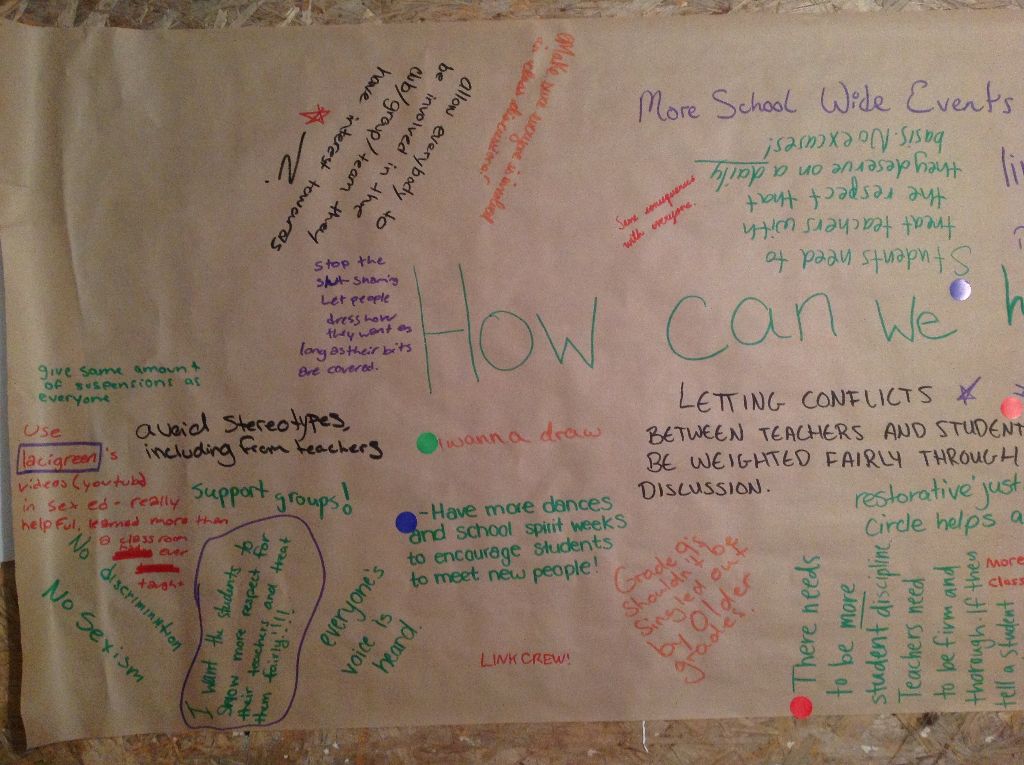 allow everybody to
be involved in the
club/group/team they
have interest towards
Make sure everyone is involved
in class discussions!
More School Wide Events
Students need to
treat teachers with
the respect that
they deserve on a daily
basis. No excuses!
Same consequences
with everyone.
Stop the
slut shaming
Let people
dress how
they want as
long as their bits
are covered.
How can we h
give same amount
of suspensions as
everyone
avoid Stereotypes,
including from teachers
i wanna draw
LETTING CONFLICTS
BETWEEN TEACHERS AND STUDENT
BE WEIGHTED FAIRLY THROUGH
DISCUSSION.
Use
lacigreen's
videos (youtube)
in sex ed - really
helpful, learned more than
a classroom
ever
taught
Support groups!
No discrimination
No Sexism
I want the students to
show more respect for
their teachers and treat
them fairly!!!!!
everyone's
voice is
heard.
-Have more dances
and school spirit weeks
to encourage students
to meet new people!
LINK CREW!
Grade 9's
shouldn't be
singled out
by older
grades!
restorative just
Circle helps a
There needs
to be more
student discipline.
Teachers need
to be firm and
thorough. If they
tell a student
More
class